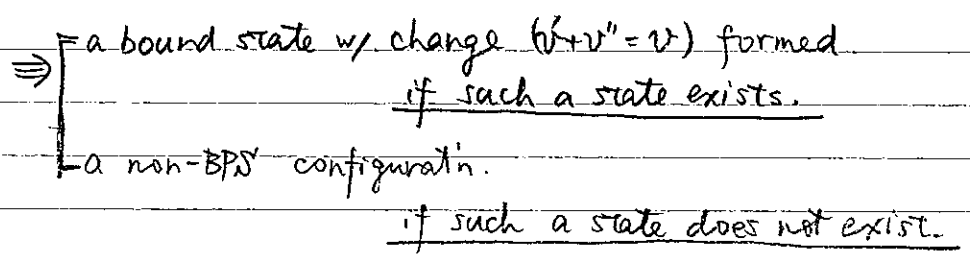 ⇒ a bound state w/. change (v'+v''=v) formed.
if such a state exists.
a non-BPS configurat'n.
if such a state does not exist.